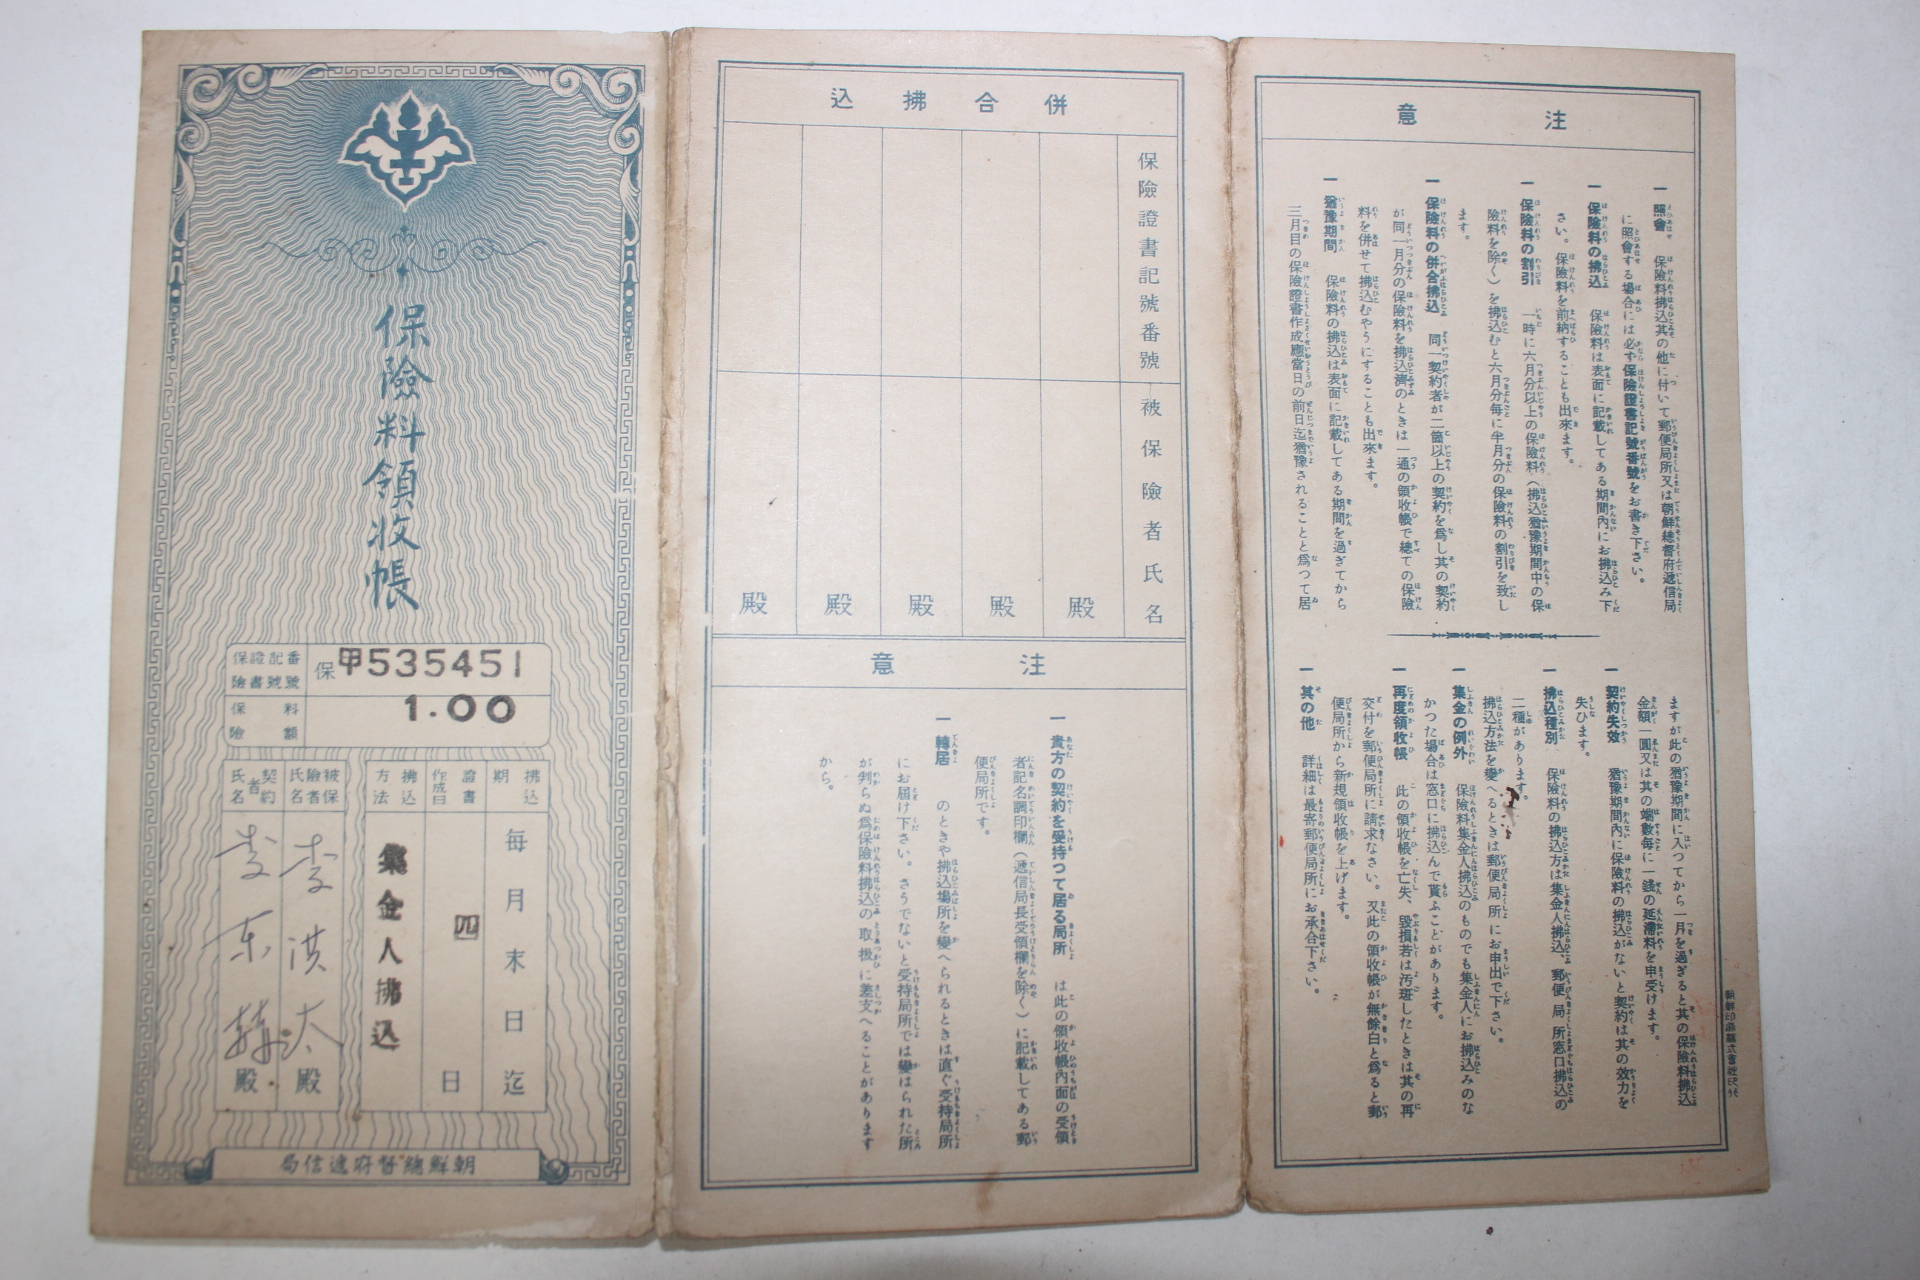 保險料領收帳
保險證書記號番號 保甲535451
保險料額 1.00
拂込期 每月末日迄
證書作成日 四 日
拂込方法 集金人拂込
被保險者氏名 李洪太殿
契約者氏名 李東
殿
朝鮮總督府遞信局
併合拂込
保險證書記號番號
被保險者氏名
殿
殿
殿
殿
殿
注意
一 貴方の契約を受持つて居る局所 は此の領收帳內面の受領
者記名調印欄（遞信局長受領欄を除く）に記載してある郵
便局所です。
一 轉居 のときや拂込場所を變へられるときは直ぐ受持局所
にお屆け下さい。さうでないと受持局所では變はられた所
が判らぬ爲保險料拂込の取扱に差支へることがあります
から。
注意
一 照會 保險料拂込其の他に付いて郵便局所又は朝鮮總督府遞信局
に照會する場合には必ず保險證書記號番號をお書き下さい。
一 保險料の拂込 保險料は表面に記載してある期間內にお拂込み下
さい。保險料を前納することも出來ます。
一 保險料の割引 一時に六月分以上の保險料（拂込猶豫期間中の保
險料を除く）を拂込むと六月分每に半月分の保險料の割引を致し
ます。
一 保險料の併合拂込 同一契約者が二箇以上の契約を爲し其の契約
が同一月分の保險料を拂込濟のときは一通の領收帳で總ての保險
料を併せて拂込むやうにすることも出來ます。
一 猶豫期間 保險料の拂込は表面に記載してある期間を過ぎてから
三月目の保險證書作成應當日の前日迄猶豫されることと爲つて居
ますが此の猶豫期間に入つてから一月を過ぎると其の保險料拂込
金額一圓又は其の端數每に一錢の延滯料を申受けます。
一 契約失效 猶豫期間內に保險料の拂込がないと契約は其の效力を
失ひます。
一 拂込種別 保險料の拂込方は集金人拂込、郵便局所窓口拂込の
二種があります。
拂込方法を變へるときは郵便局所にお申出で下さい。
一 集金の例外 保險料集金人拂込のものでも集金人にお拂込みのな
かつた場合は窓口に拂込んで貰ふことがあります。
一 再度領收帳 此の領收帳を亡失、毀損若は汚斑したときは其の再
交付を郵便局所に請求なさい。又此の領收帳が無餘白と爲ると郵
便局所から新規領收帳を上げます。
一 其の他 詳細は最寄郵便局所にお承合下さい。